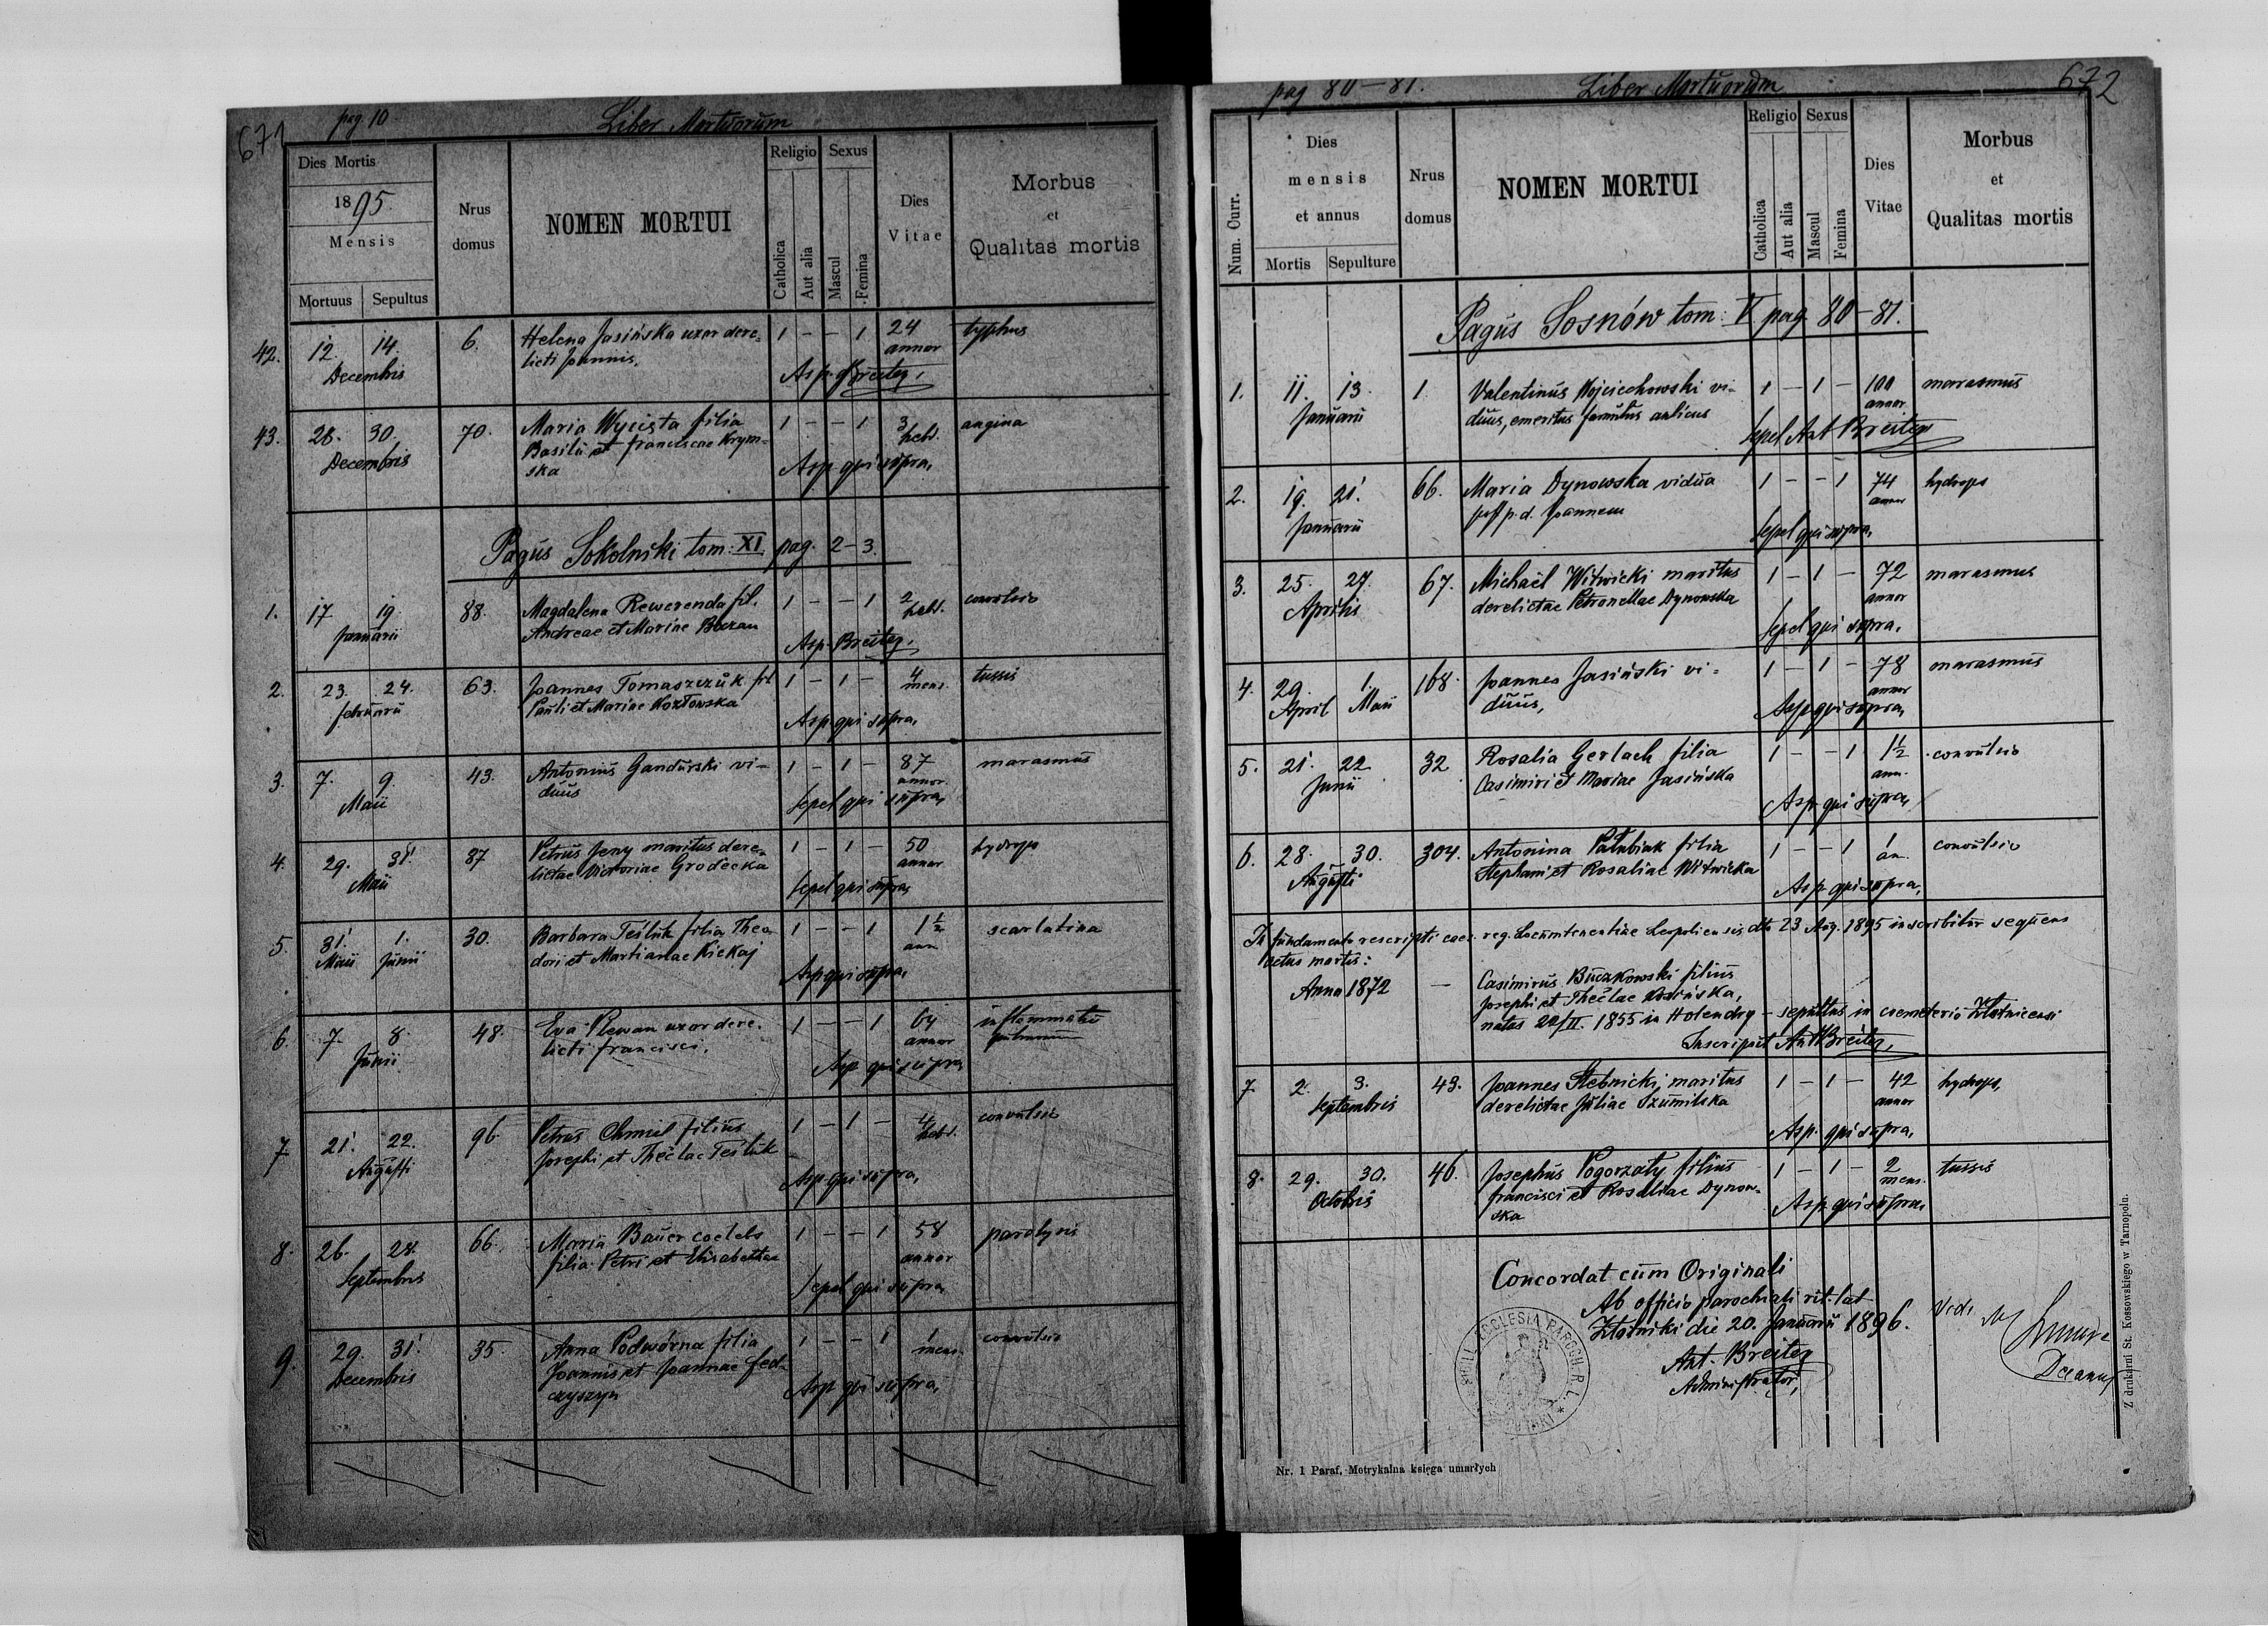 671 pag. 10 Liber Mortuorum
Dies Mortis
1895.
Mensis
Mortuus Sepultus
Nrus domus
NOMEN MORTUI
Religio Sexus
Catholica Aut alia Mascul Femina
Dies Vitae
Morbus et Qualitas mortis
42. 12. 14. 6. Helena Jasińska uxor dere= 1 - - 1 24 typhus
Decembris licti Joannis. annor
Asp. Breiter.
43. 28. 30. 70. Maria Wycista filia 1 - - 1 3 angina
Decembris Basilii et Franciscae Krym= hebd.
ska Asp. qui supra,
Pagus Sokolniki tom: XI pag. 2-3.
1. 17 19. 88. Magdalena Rewerenda fil. 1 - - 1 2 convulsio
Januarii Andreae et Mariae hebd.
Asp. Breiter.
2. 23. 24. 63. Joannes Tomaszczuk fil 1 - 1 - 4 tussis
februarii Pauli et Mariae Kozłowska mens.
Asp. qui supra,
3. 7. 9. 43. Antonius Gandurski vi- 1 - 1 - 87 marasmus
Maii duus annor
Sepel qui supra,
4. 29. 31. 87 Petrus Jeny maritus dere= 1 - 1 - 50 hydrops
Maii lictae Victoriae Grodecka annor
Sepel qui supra,
5. 31. 1. 30. Barbara Teśluk filia Theo 1 - - 1 1½ scarlatina
Maii Junii dori et Martianae Kickaj ann
Asp qui supra,
6. 7. 8. 48. Eva Plewan uxor dere. 1 - - 1 64 inflammatio
Junii licti Francisci. annor pulmonum
Asp qui supra
7. 21. 22. 96. Petrus Chmil filius 1 - 1 - 4 convulsio
Augusti Josephi et Theclae Teśluk hebd.
Asp. qui supra,
8. 26. 28. 66. Maria Bauer coelebs 1 - - 1 58 paralysis
Septembris filia Petri et Elisabethae annor
Sepel qui supra,
9. 29. 31. 35. Anna Podwórna filia 1 - - 1 1 convulsio
Decembris Joannis et Joannae Fed= mens.
czyszyn Asp qui supra,
pag 80-81. Liber Mortuorum 672
Num. Curr.
Dies mensis et annus
Mortis Sepulture
Nrus domus
NOMEN MORTUI
Religio Sexus
Catholica Aut alia Mascul Femina
Dies Vitae
Morbus et Qualitas mortis
Pagus Sosnów tom: V pag 80-81.
1. 11. 13. 1. Valentinus Wojciechowski vi- 1 - 1 - 100 marasmus
Januarii duus, emeritus famulus aulicus annor
Sepel Ant Breiter
2. 19. 21. 66. Maria Dynowska vidua 1 - - 1 74 hydrops
Januarii p. d. Joannem annor
Sepel qui supra,
3. 25. 27. 67. Michaël Witwicki maritus 1 - 1 - 72 marasmus
Aprilis derelictae Petronellae Dynowska annor
Sepel qui supra.
4. 29. 1. 168. Joannes Jasiński vi- 1 - 1 - 78 marasmus
April Maii duus, annor
Asp qui supra,
5. 21. 22. 32 Rosalia Gerlach filia 1 - - 1 1½ convulsio
Junii Casimiri et Mariae Jasińska ann.
Asp. qui supra,
6. 28. 30. 304. Antonina Pałubiak filia 1 - - 1 1 convulsio
Augusti Stephani et Rosaliae Witwicka an.
Asp. qui supra,
In fundamento rescripti caes. reg. Locumtenentiae Leopoliensis dto 23 Aug. 1895 inscribitur sequens
actus mortis:
Anno 1872 - Casimirus Buczkowski filius
Josephi et Theclae
natus 22/II. 1855 in Holendry - sepultus in coemeterio Złotnicensi
Inscripsit Ant Breiter,
7. 2. 3. 43. Joannes Stebnicki maritus 1 - 1 - 42 hydrops,
Septembris derelictae Juliae Szumilska annor
Asp. qui supra,
8. 29. 30. 46. Josephus Pogorzały filius 1 - 1 - 2 tussis
Octobris Francisci et Rosaliae Dynow= mens.
ska Asp. qui supra,
Concordat cum Originali
Ab officio parochiali rit. lat
Złotniki die 20. Januarii 1896.
Ant. Breiter
Administrator,
Vidi
Decanus
ECCLESIA PAROCH. R. L.
Nr. 1 Paraf. Metrykalna księga umarłych
Z drukarni St. Kossowskiego w Tarnopolu.